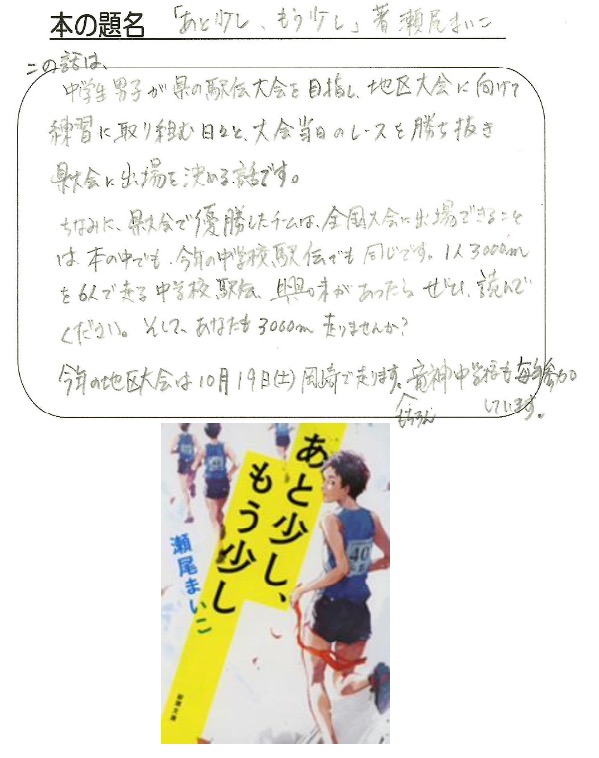 本の題名 「あと少し、もう少し」著 瀬尾まいこ
この話は、
中学生男子が県の駅伝大会を目指し、地区大会に向けて
練習に取り組む日々と、大会当日のレースを勝ち抜き
県大会に出場を決める話です。
ちなみに、県大会で優勝したチームは、全国大会に出場できること
は本の中でも、今年の中学校駅伝でも同じです。1人3000m
を6人で走る中学校駅伝、興味があったらぜひ、読んで
ください。そして、あなたも3000m走りませんか?
今年の地区大会は10月19日(土)岡崎で走ります。竜神中学校も毎年参加
もちろん
しています。
あと少し、
もう少し
瀬尾まいこ
40
新潮文庫